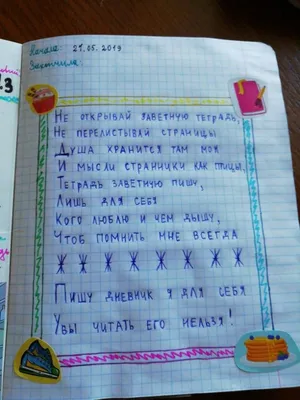 Начала: 21.05.2019
Закончила:
Не открывай заветную тетрадь,
Не перелистывай страницы
Душа хранится там моя
И мысли странники как птицы.
Тетрадь заветную пишу,
Лишь для себя
Кого люблю и чем дышу,
Чтоб помнить мне всегда
Пишу дневник я для себя
Увы читать его нельзя!